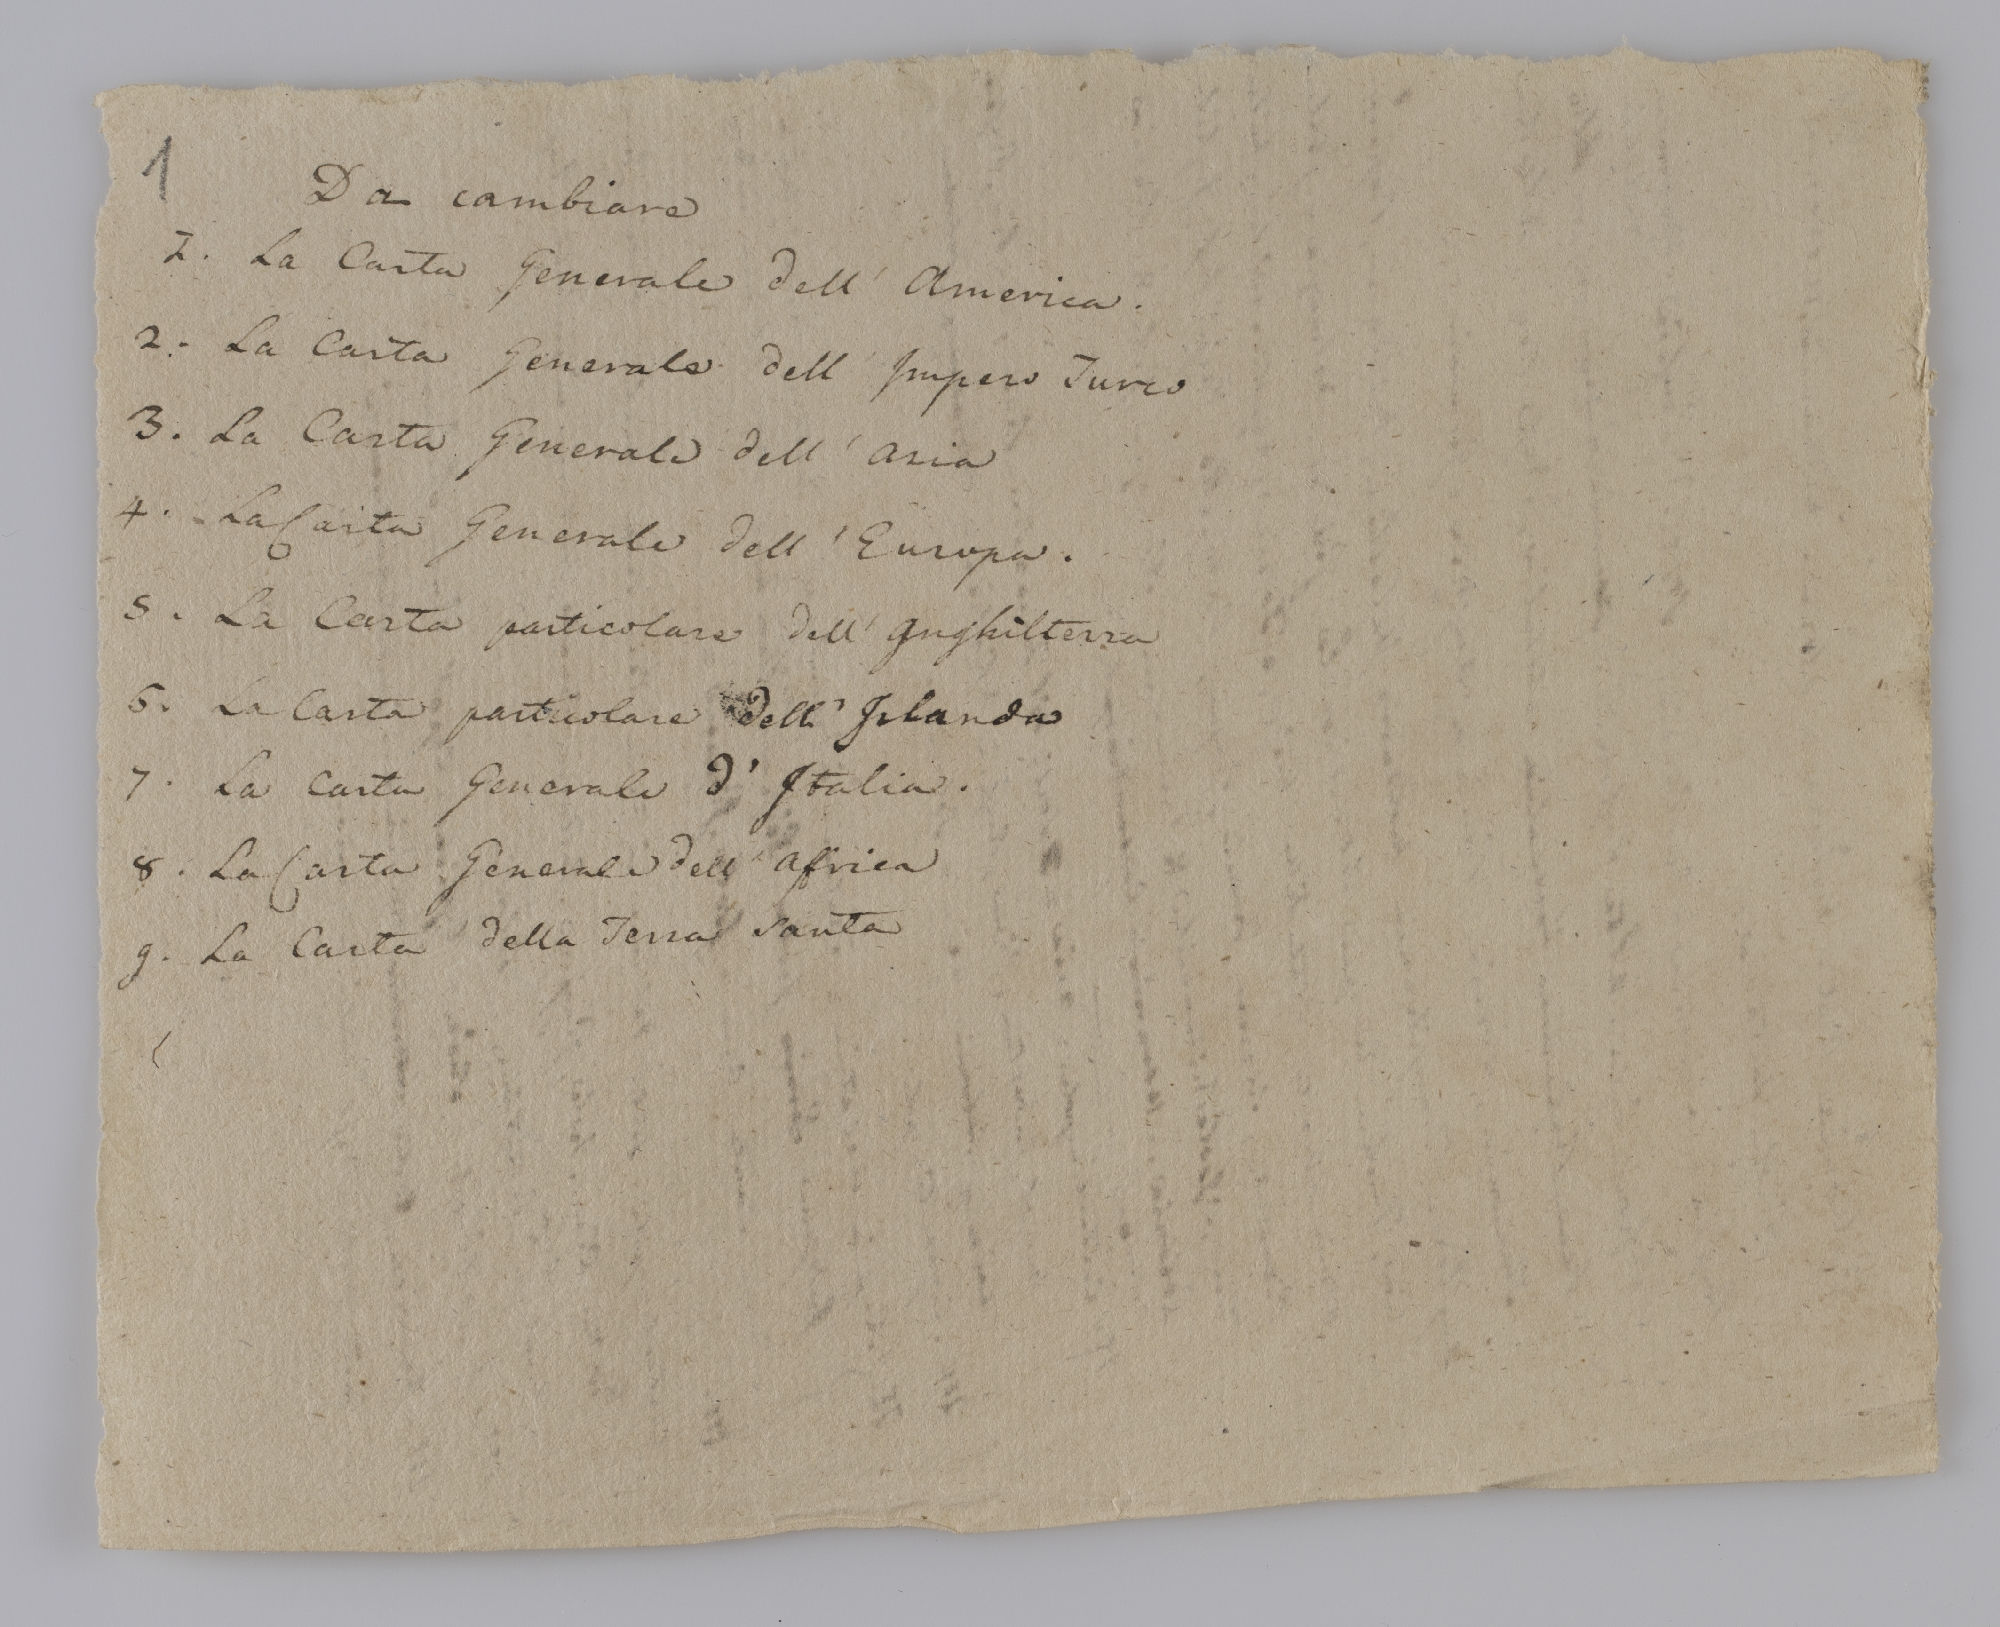 1
Da cambiare
1. La Carta Generale dell' America.
2. La Carta Generale dell Impero Turco
3. La Carta Generale dell' Asia
4. La Carta Generale dell' Europa.
5. La Carta particolare dell' Inghilterra
6. La Carta particolare dell' Irlanda
7. La Carta Generale d' Italia.
8. La Carta Generale dell' Africa
9. La Carta della Terra Santa